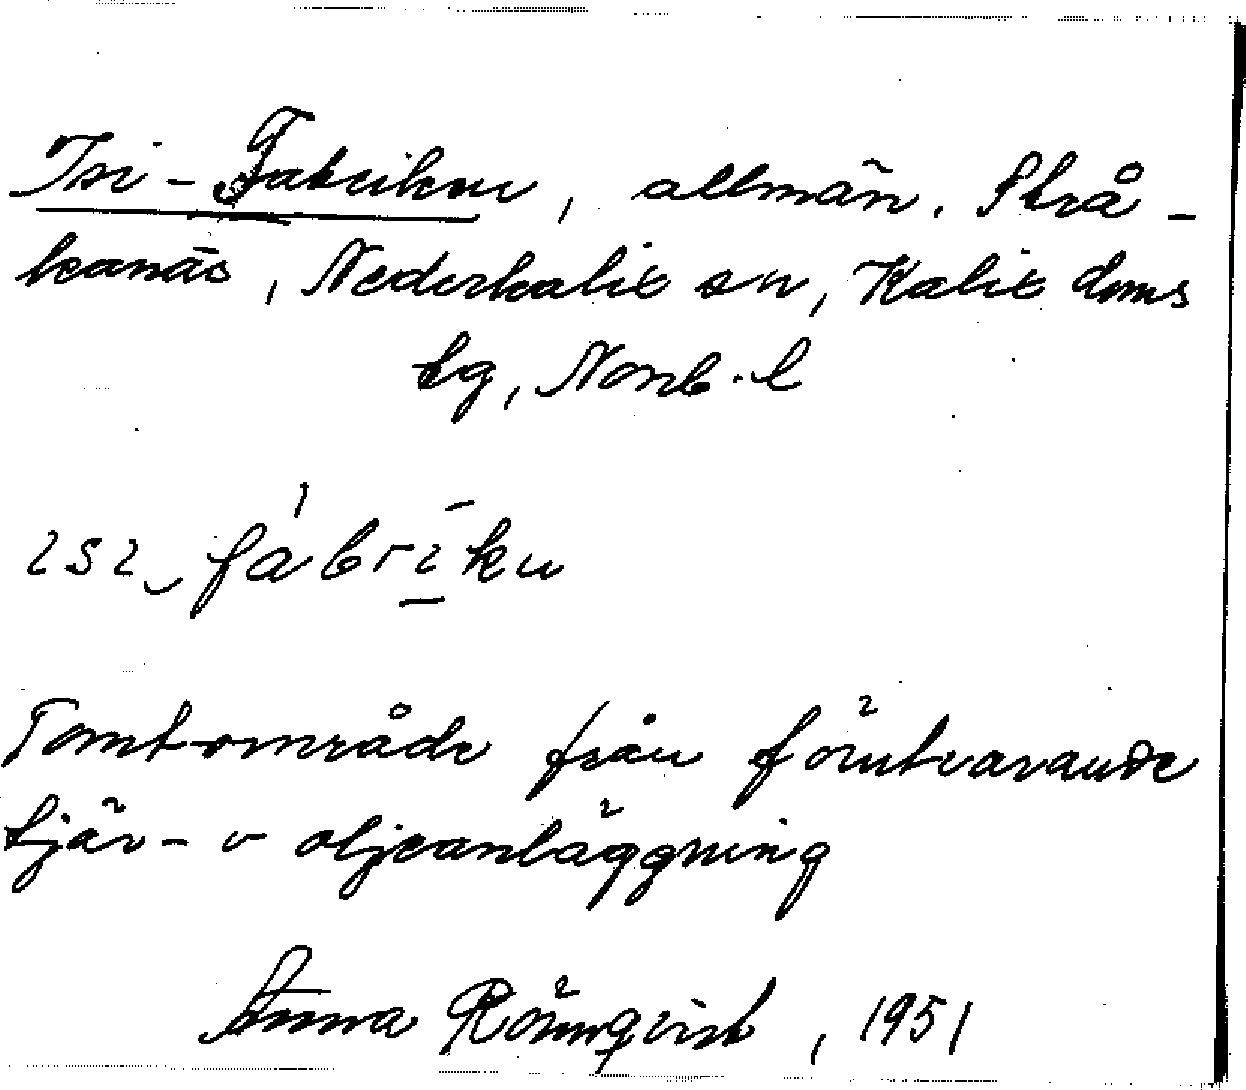 Isi-Fabriken, allmän. Strå-
kanäs, Nederkalix sn, Kalix doms
tg, Norrb. l
isi fabriku
Tomtområde från förutvarande
tjär- o oljeanläggning
Anna Rönnqvist, 1951